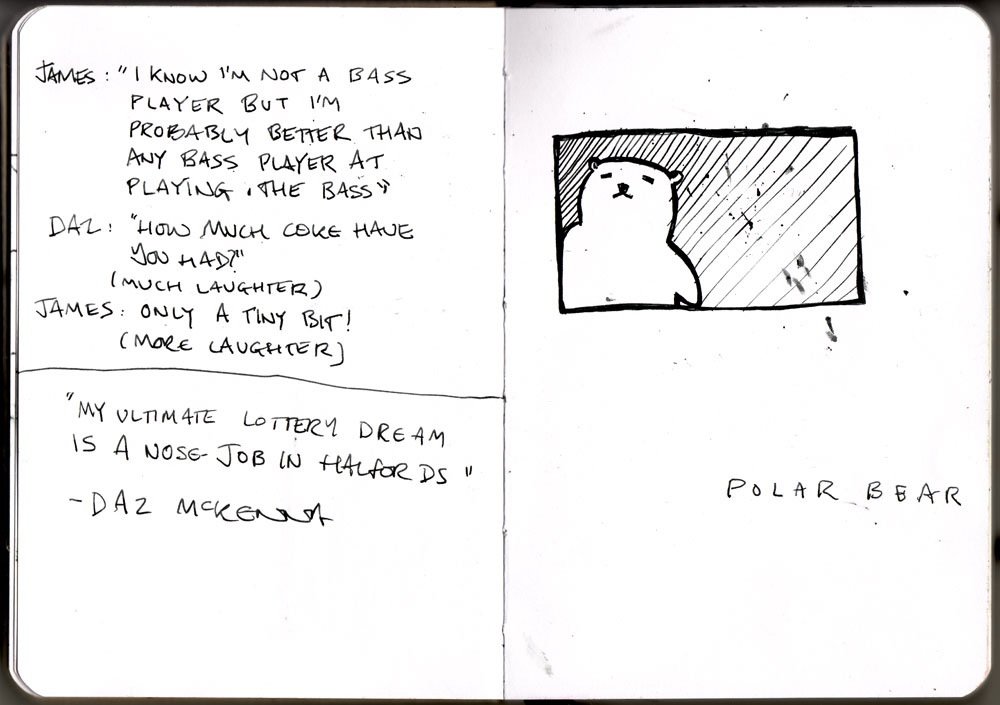 JAMES: "I KNOW I'M NOT A BASS
PLAYER BUT I'M
PROBABLY BETTER THAN
ANY BASS PLAYER AT
PLAYING THE BASS"
DAZ: "HOW MUCH COKE HAVE
YOU HAD?"
(MUCH LAUGHTER)
JAMES: ONLY A TINY BIT!
(MORE LAUGHTER)
"MY ULTIMATE LOTTERY DREAM
IS A NOSE-JOB IN HALFORDS"
- DAZ MCKENNA
POLAR BEAR